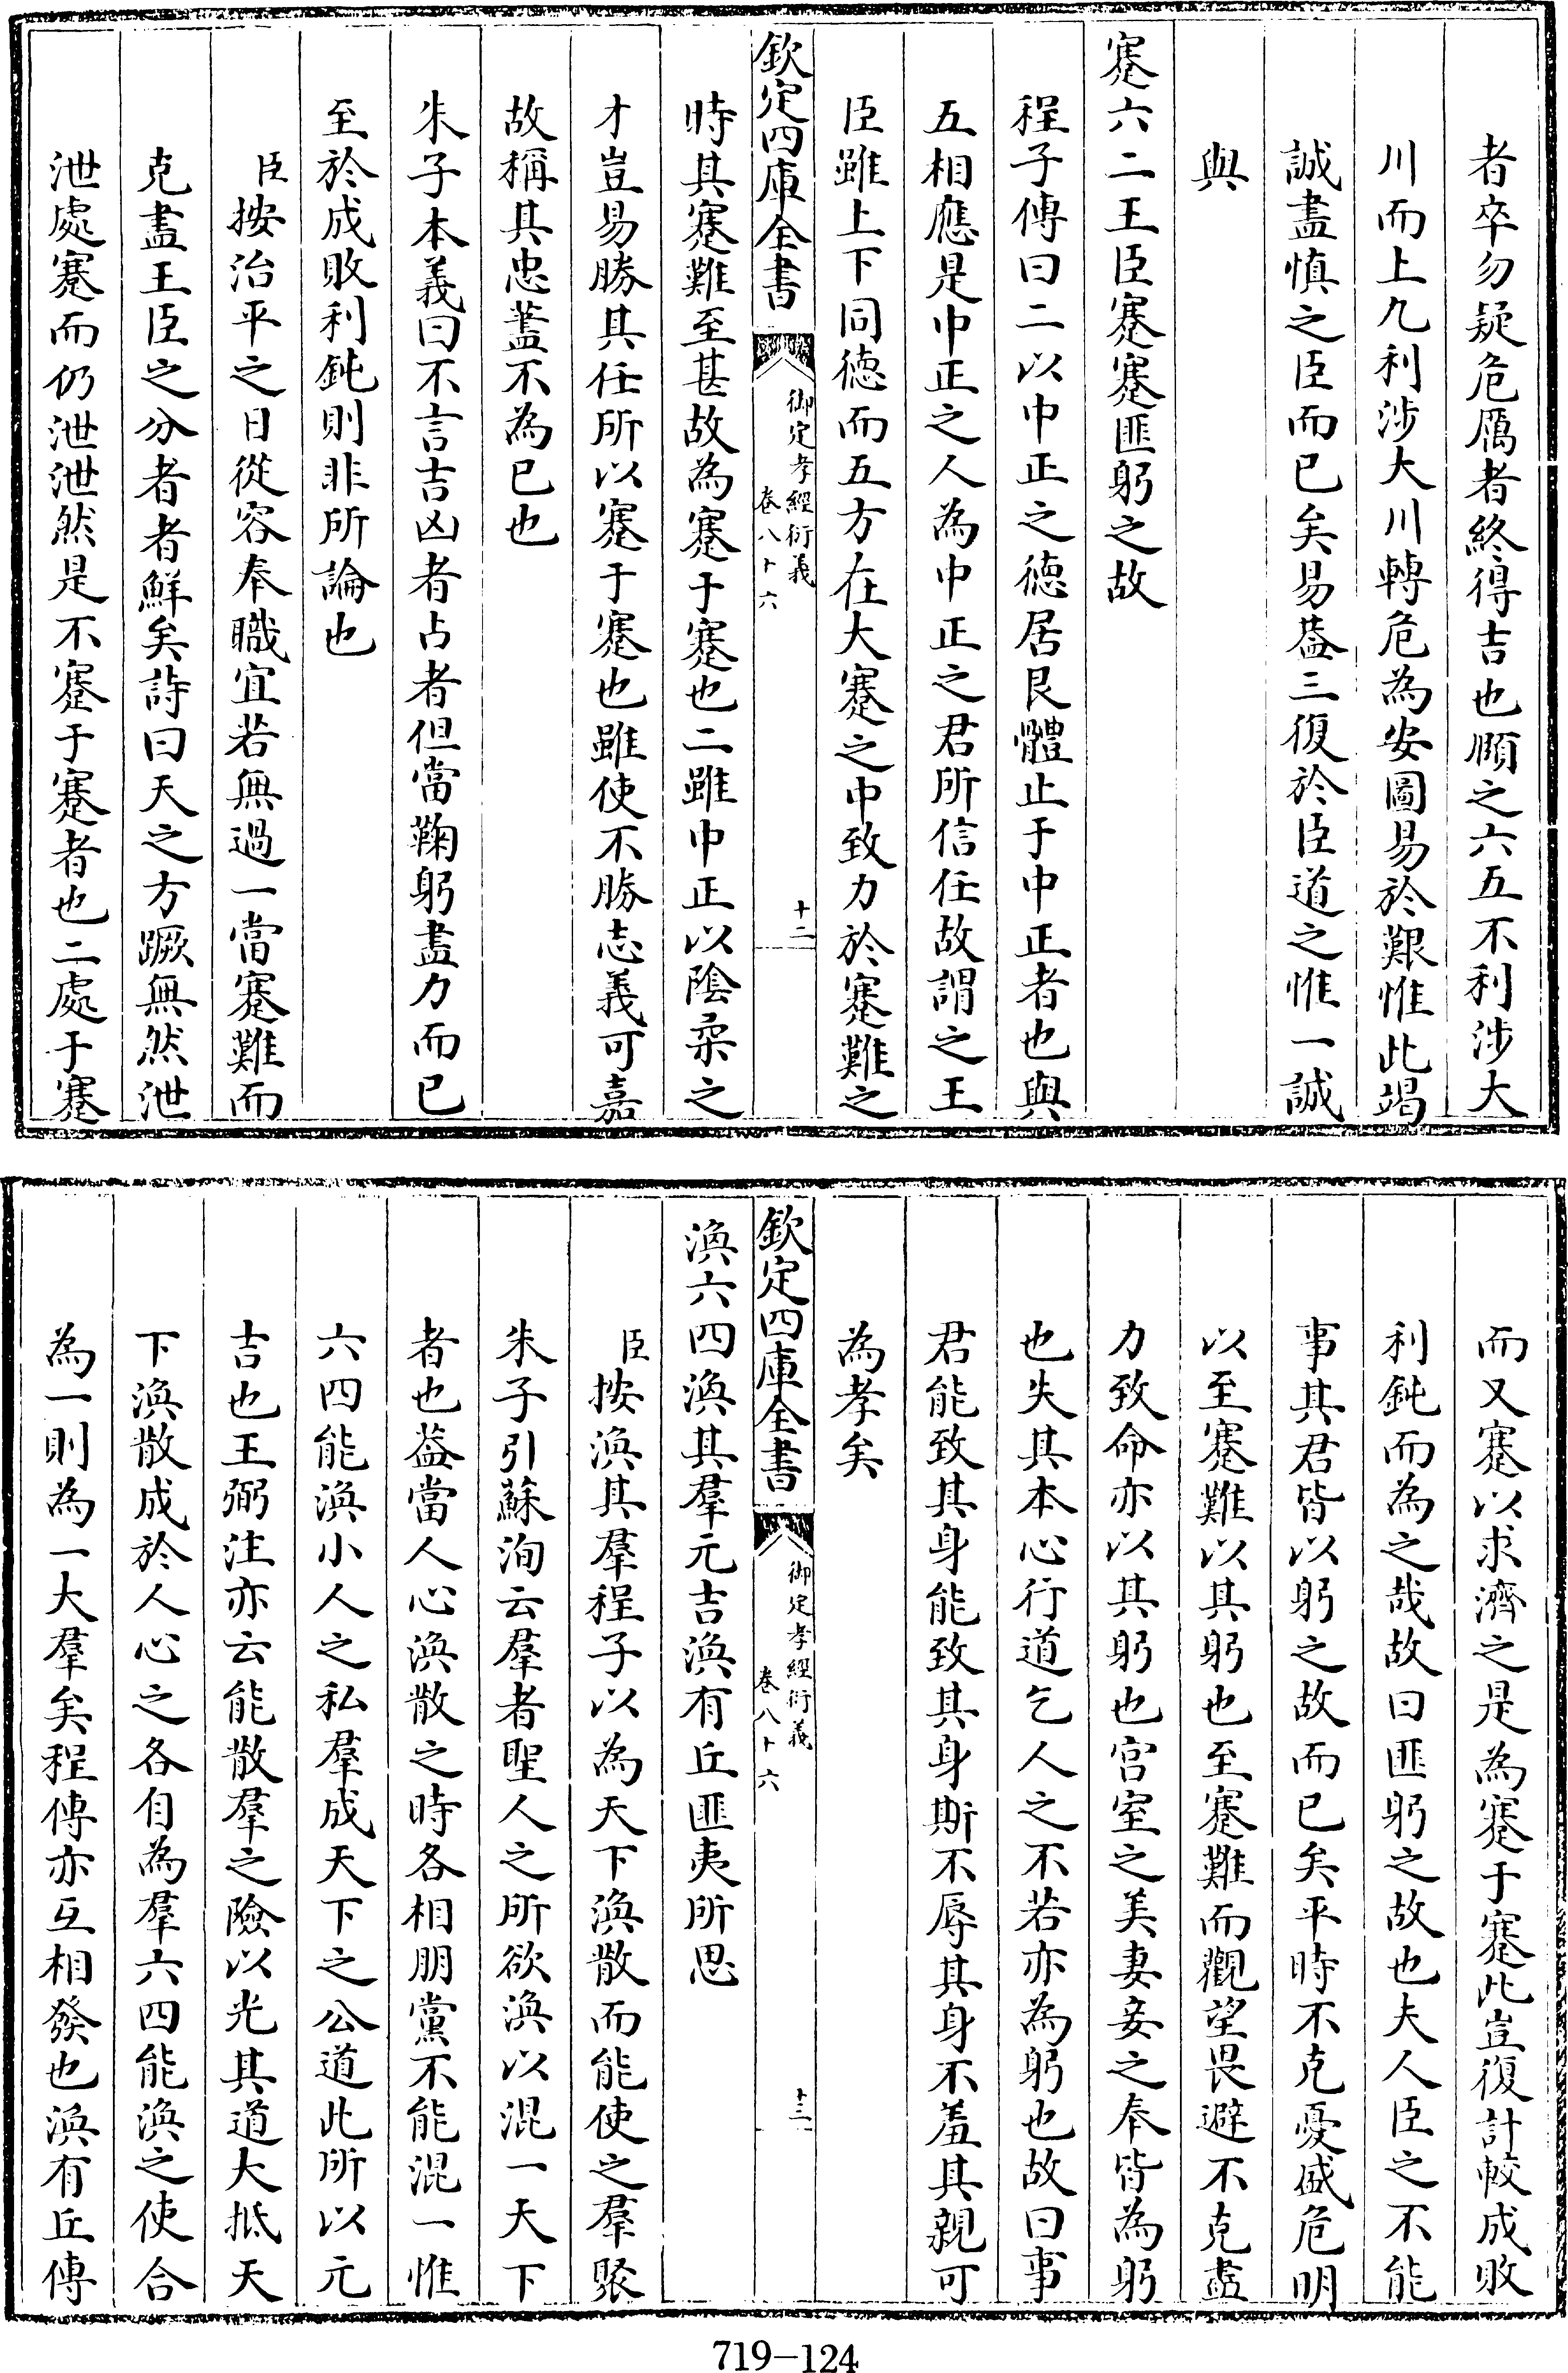 者卒勿疑危厲者終得吉也頤之六五不利涉大
川而上九利涉大川轉危為安圖易於艱惟此竭
誠盡慎之臣而已矣易葢三復於臣道之惟一誠
與
蹇六二王臣蹇蹇匪躬之故
程子傳曰二以中正之德居艮體止于中正者也與
五相應是中正之人為中正之君所信任故謂之王
臣雖上下同德而五方在大蹇之中致力於蹇難之
欽定四庫全書
御定孝經衍義
卷八十六
十二
時其蹇難至甚故為蹇于蹇也二雖中正以陰柔之
才豈易勝其任所以蹇于蹇也雖使不勝志義可嘉
故稱其忠藎不為已也
朱子本義曰不言吉凶者占者但當鞠躬盡力而已
至於成敗利鈍則非所論也
臣按治平之日從容奉職宜若無過一當蹇難而
克盡王臣之分者者鮮矣詩曰天之方蹶無然泄
泄處蹇而仍泄泄然是不蹇于蹇者也二處于蹇
而又蹇以求濟之是為蹇于蹇此豈復計較成敗
利鈍而為之哉故曰匪躬之故也夫人臣之不能
事其君皆以躬之故而已矣平時不克憂盛危明
以至蹇難以其躬也至蹇難而觀望畏避不克盡
力致命亦以其躬也宫室之美妻妾之奉皆為躬
也失其本心行道乞人之不若亦為躬也故曰事
君能致其身能致其身斯不辱其身不羞其親可
為孝矣
欽定四庫全書
御定孝經衍義
卷八十六
十三
渙六四渙其羣元吉渙有丘匪夷所思
臣按渙其羣程子以為天下渙散而能使之羣聚
朱子引蘇洵云羣者聖人之所欲渙以混一天下
者也葢當人心渙散之時各相朋黨不能混一惟
六四能渙小人之私羣成天下之公道此所以元
吉也王弼注亦云能散羣之險以光其道大抵天
下渙散成於人心之各自為羣六四能渙之使合
為一則為一大羣矣程傳亦互相發也渙有丘傳
719-124